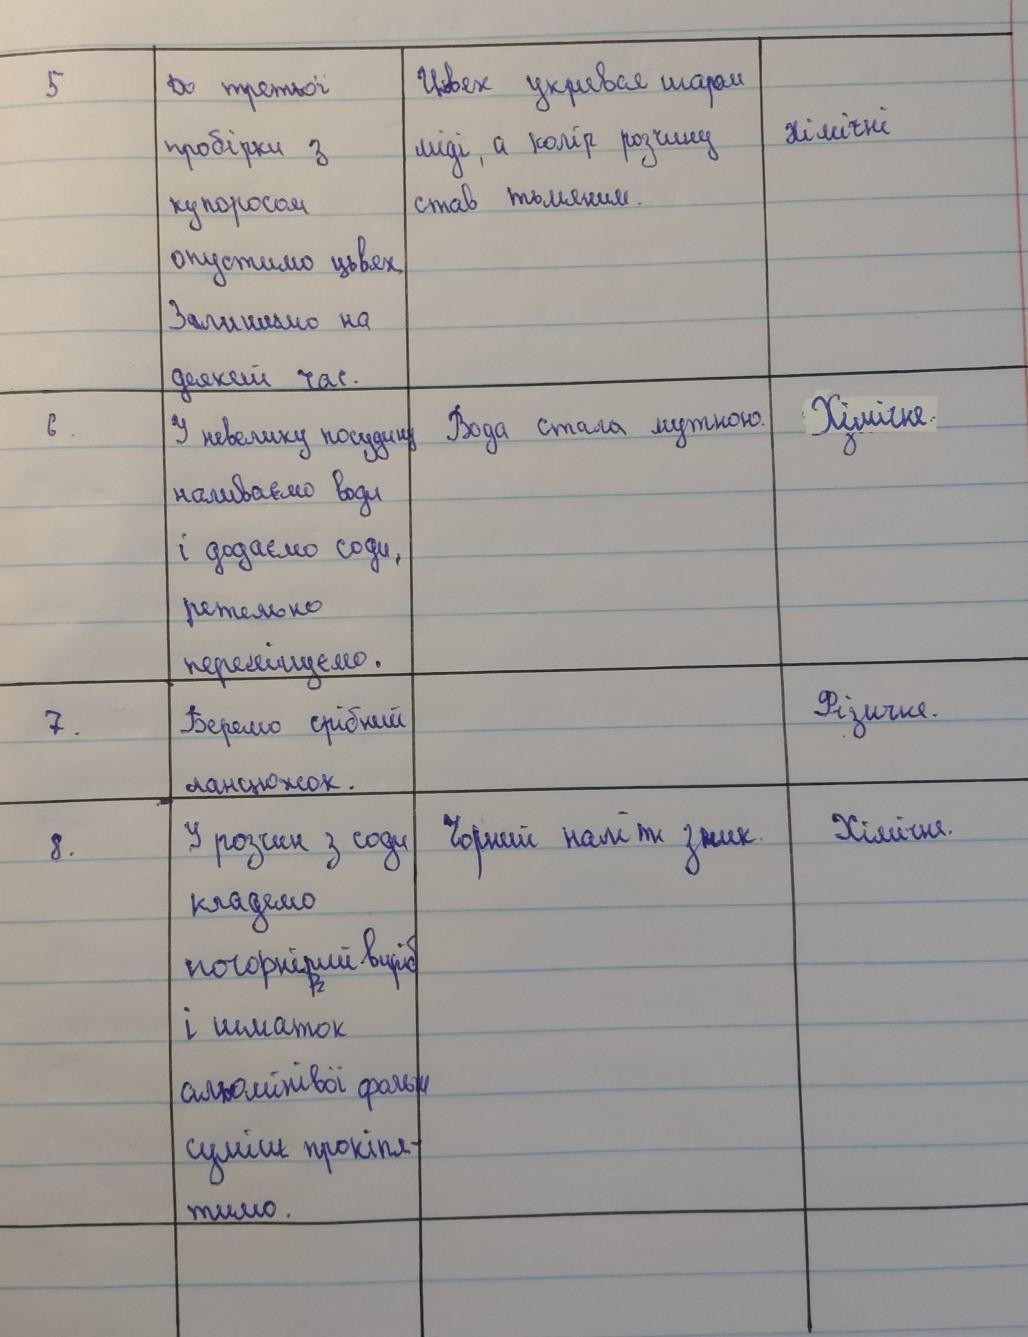 5
До третьої
пробірки з
купоросом
опустимо цьвях
Залишимо на
деякий час.
Цвях укрився шаром
міді, а колір розчину
став тьмяним.
хімічні
6.
У невелику посудину
наливаємо води
і додаємо соди,
ретельно
перемішуємо.
Вода стала мутною.
Хімічне.
7.
Беремо срібний
ланцюжок.
Фізичне.
8.
У розчин з соди
кладемо
почорнірий виріб
і шматок
алюмінівої фольги
суміш прокіпя-
тимо.
Чорний наліт зник.
Хімічне.